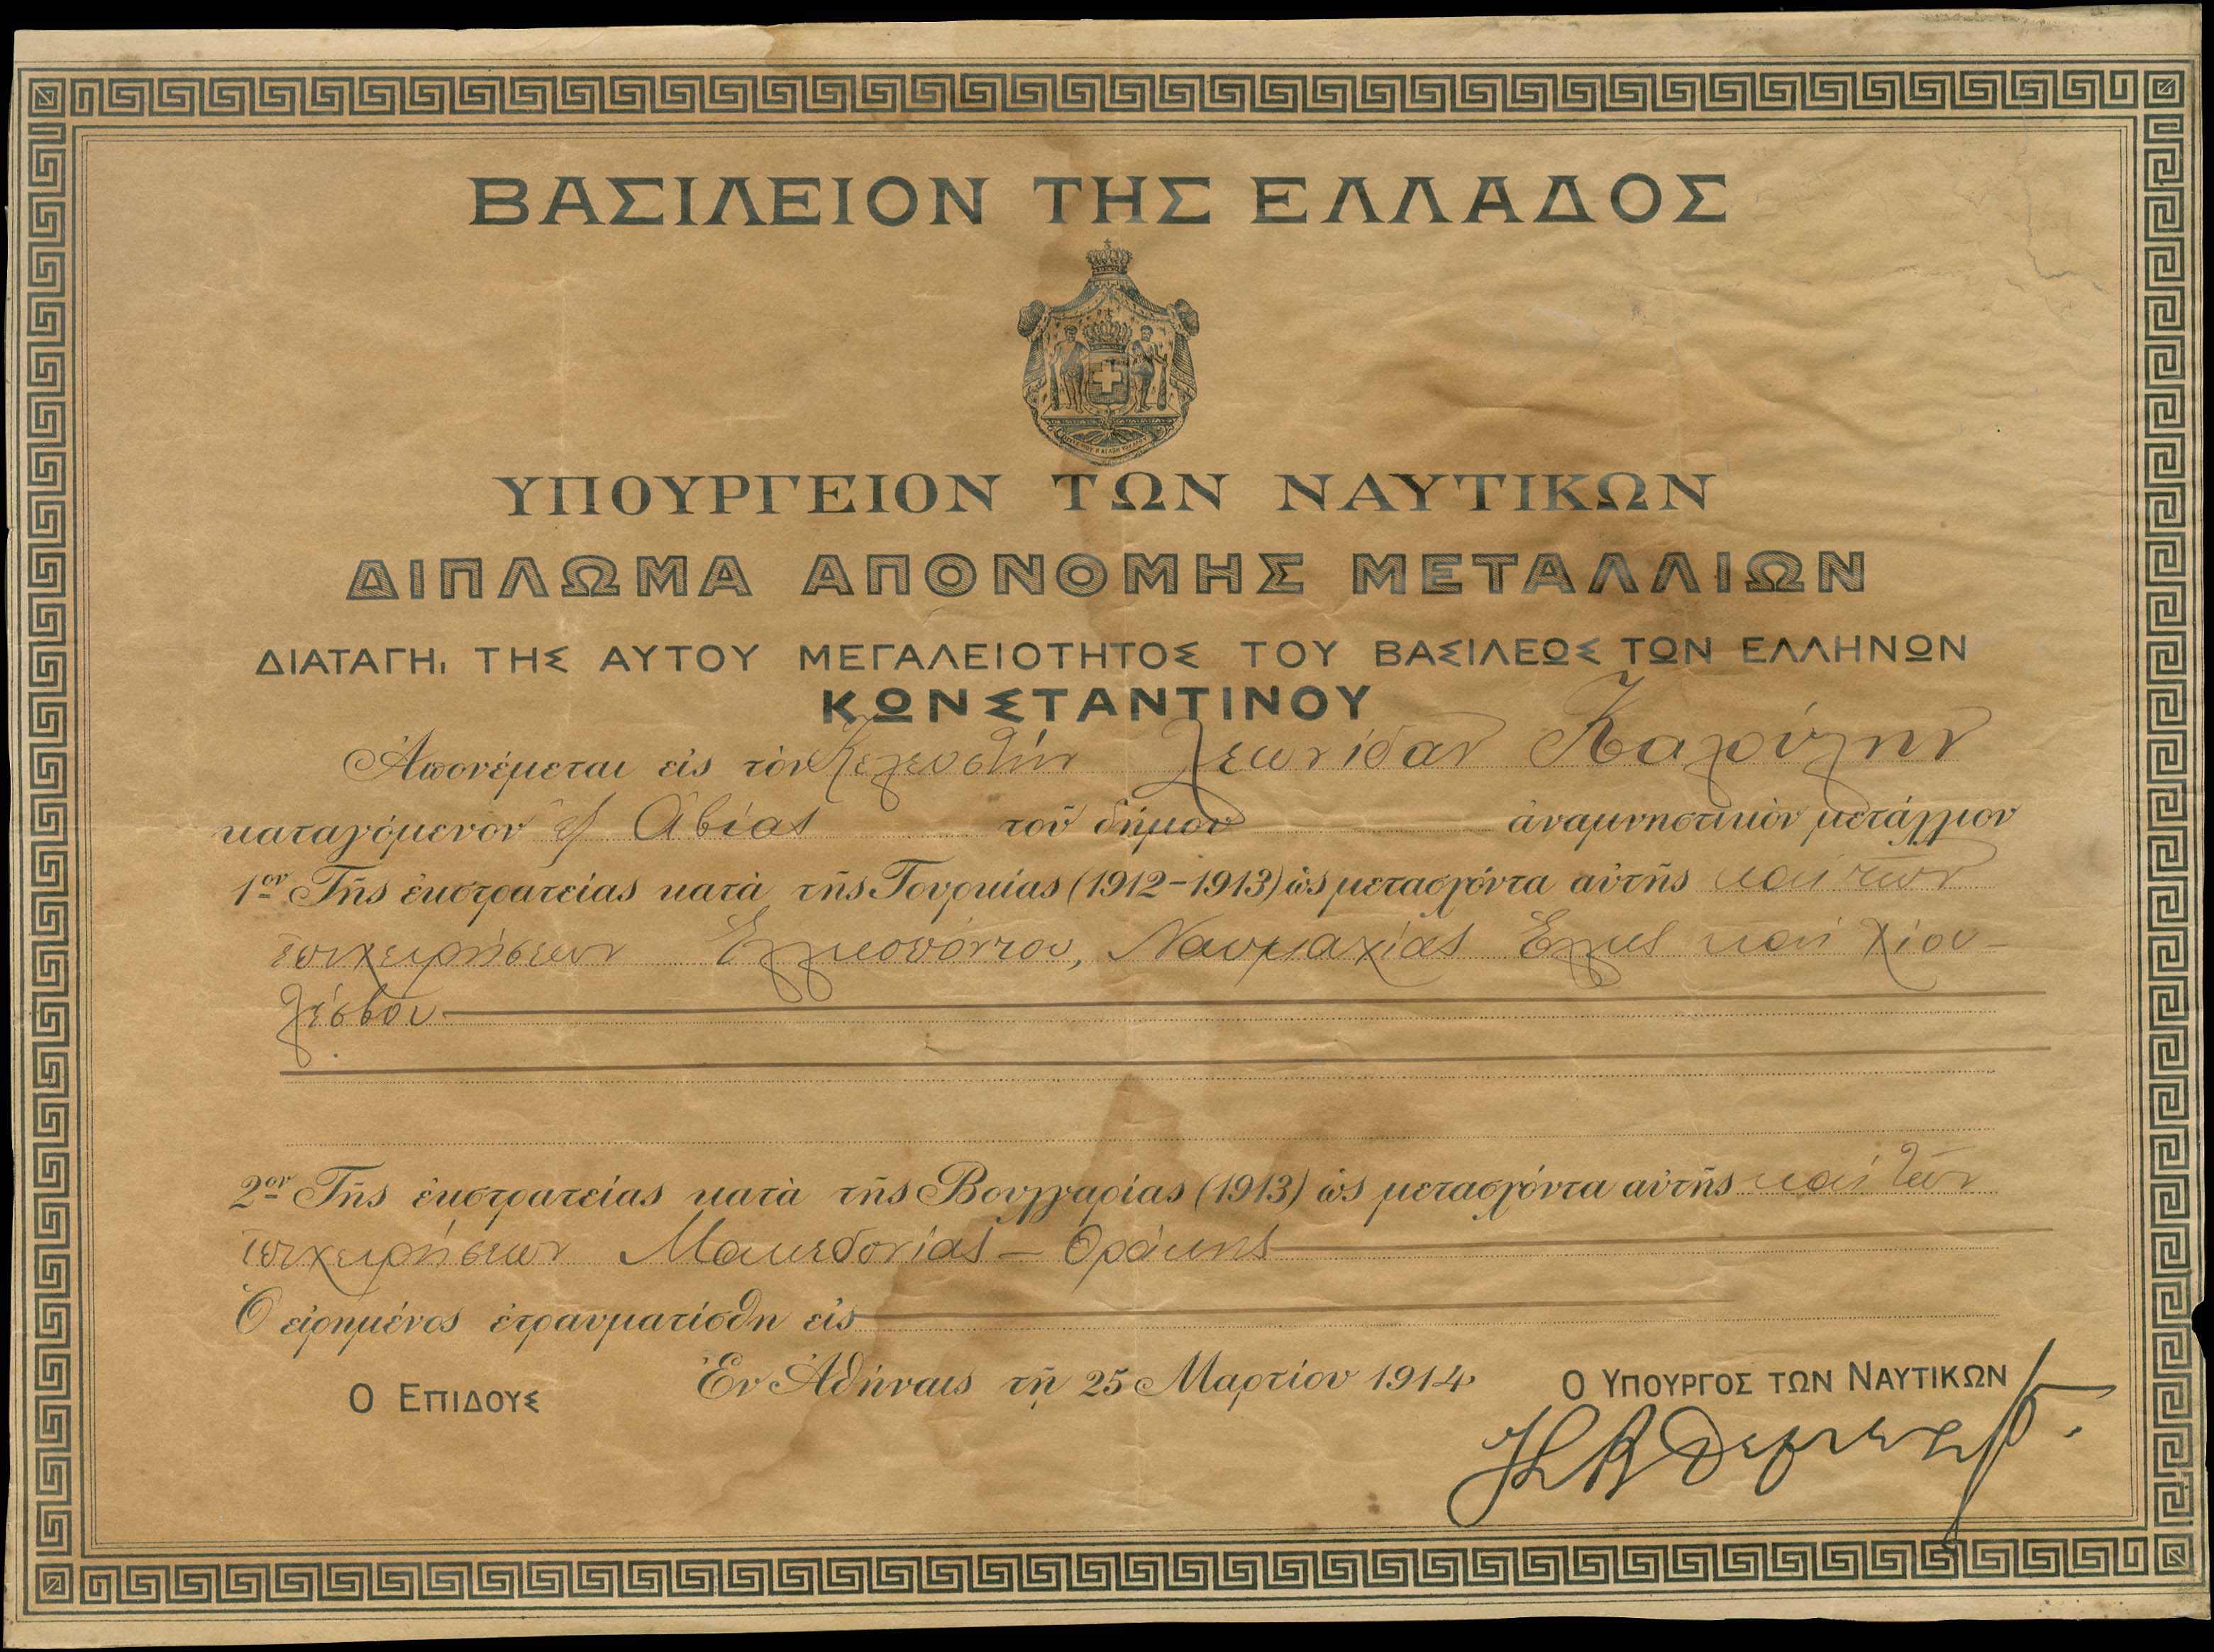 ΒΑΣΙΛΕΙΟΝ ΤΗΣ ΕΛΛΑΔΟΣ
ΥΠΟΥΡΓΕΙΟΝ ΤΩΝ ΝΑΥΤΙΚΩΝ
ΔΙΠΛΩΜΑ ΑΠΟΝΟΜΗΣ ΜΕΤΑΛΛΙΩΝ
ΔΙΑΤΑΓΗι ΤΗΣ ΑΥΤΟΥ ΜΕΓΑΛΕΙΟΤΗΤΟΣ ΤΟΥ ΒΑΣΙΛΕΩΣ ΤΩΝ ΕΛΛΗΝΩΝ
ΚΩΝΣΤΑΝΤΙΝΟΥ
Ἀπονέμεται εἰς τὸν Κελευστήν Λεωνίδαν
καταγόμενον ἐξ Ἀβίας τοῦ δήμου ἀναμνηστικὸν μετάλλιον
1ον Τῆς ἐκστρατείας κατὰ τῆς Τουρκίας (1912-1913) ὡς μετασχόντα αὐτῆς καὶ τῶν
ἐπιχειρήσεων Ἑλλησπόντου, Ναυμαχίας Ἕλλης καὶ Χίου -
Λέσβου
2ον Τῆς ἐκστρατείας κατὰ τῆς Βουλγαρίας (1913) ὡς μετασχόντα αὐτῆς καὶ τῶν
ἐπιχειρήσεων Μακεδονίας - Θράκης
Ὁ εἰρημένος ἐτραυματίσθη εἰς
Ἐν Ἀθήναις τῇ 25 Μαρτίου 1914
Ο ΕΠΙΔΟΥΣ
Ο ΥΠΟΥΡΓΟΣ ΤΩΝ ΝΑΥΤΙΚΩΝ